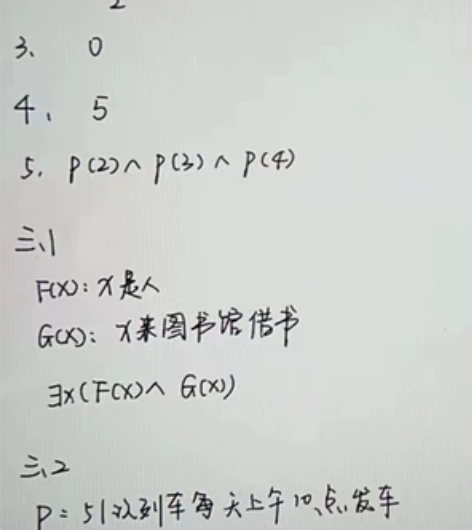 2
3、 0
4、 5
5. P(2)∧P(3)∧P(4)
三、1
F(x): x是人
G(x): x来图书馆借书
∃x(F(x)∧G(x))
三、2
P: 51次列车每天上午10点发车